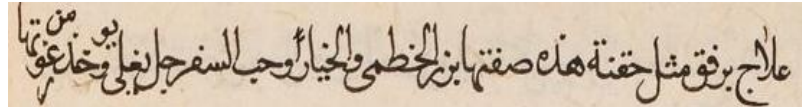 علاج برفق مثل حقنة هذه صفتها بزر الخطمى والخيار أوحب السفرجل يغلى ويوخذ من